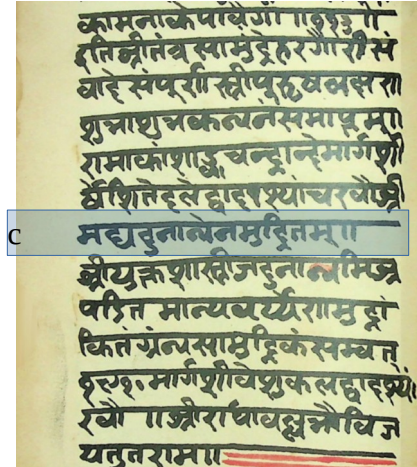 कामनाकेपावैगी ॥११३॥
इतिश्रीतंत्रसामुद्रेहरगौरीसं
वादेसंपूर्णस्त्रीपुरुषलक्षण
शुभाशुभकथनंसमाप्तम्॥
रामाकाशाङ्कचन्द्राब्देमार्गशी
र्षेशितेदलेद्वादश्यांचरवौश्री
C मद्यदुनाथेनमुद्रितम्॥
श्रीयुक्तशास्त्रीजदुनाथमिश्र
पण्डित मान्यवर्य्यरामुद्रां
कितंग्रंथसामुद्रिकंसम्वत्
१९१० मार्गशीर्षेशुक्लद्वादश्यां
रवौ ॥श्रीराधावल्लभौविज
यतुतराम्॥